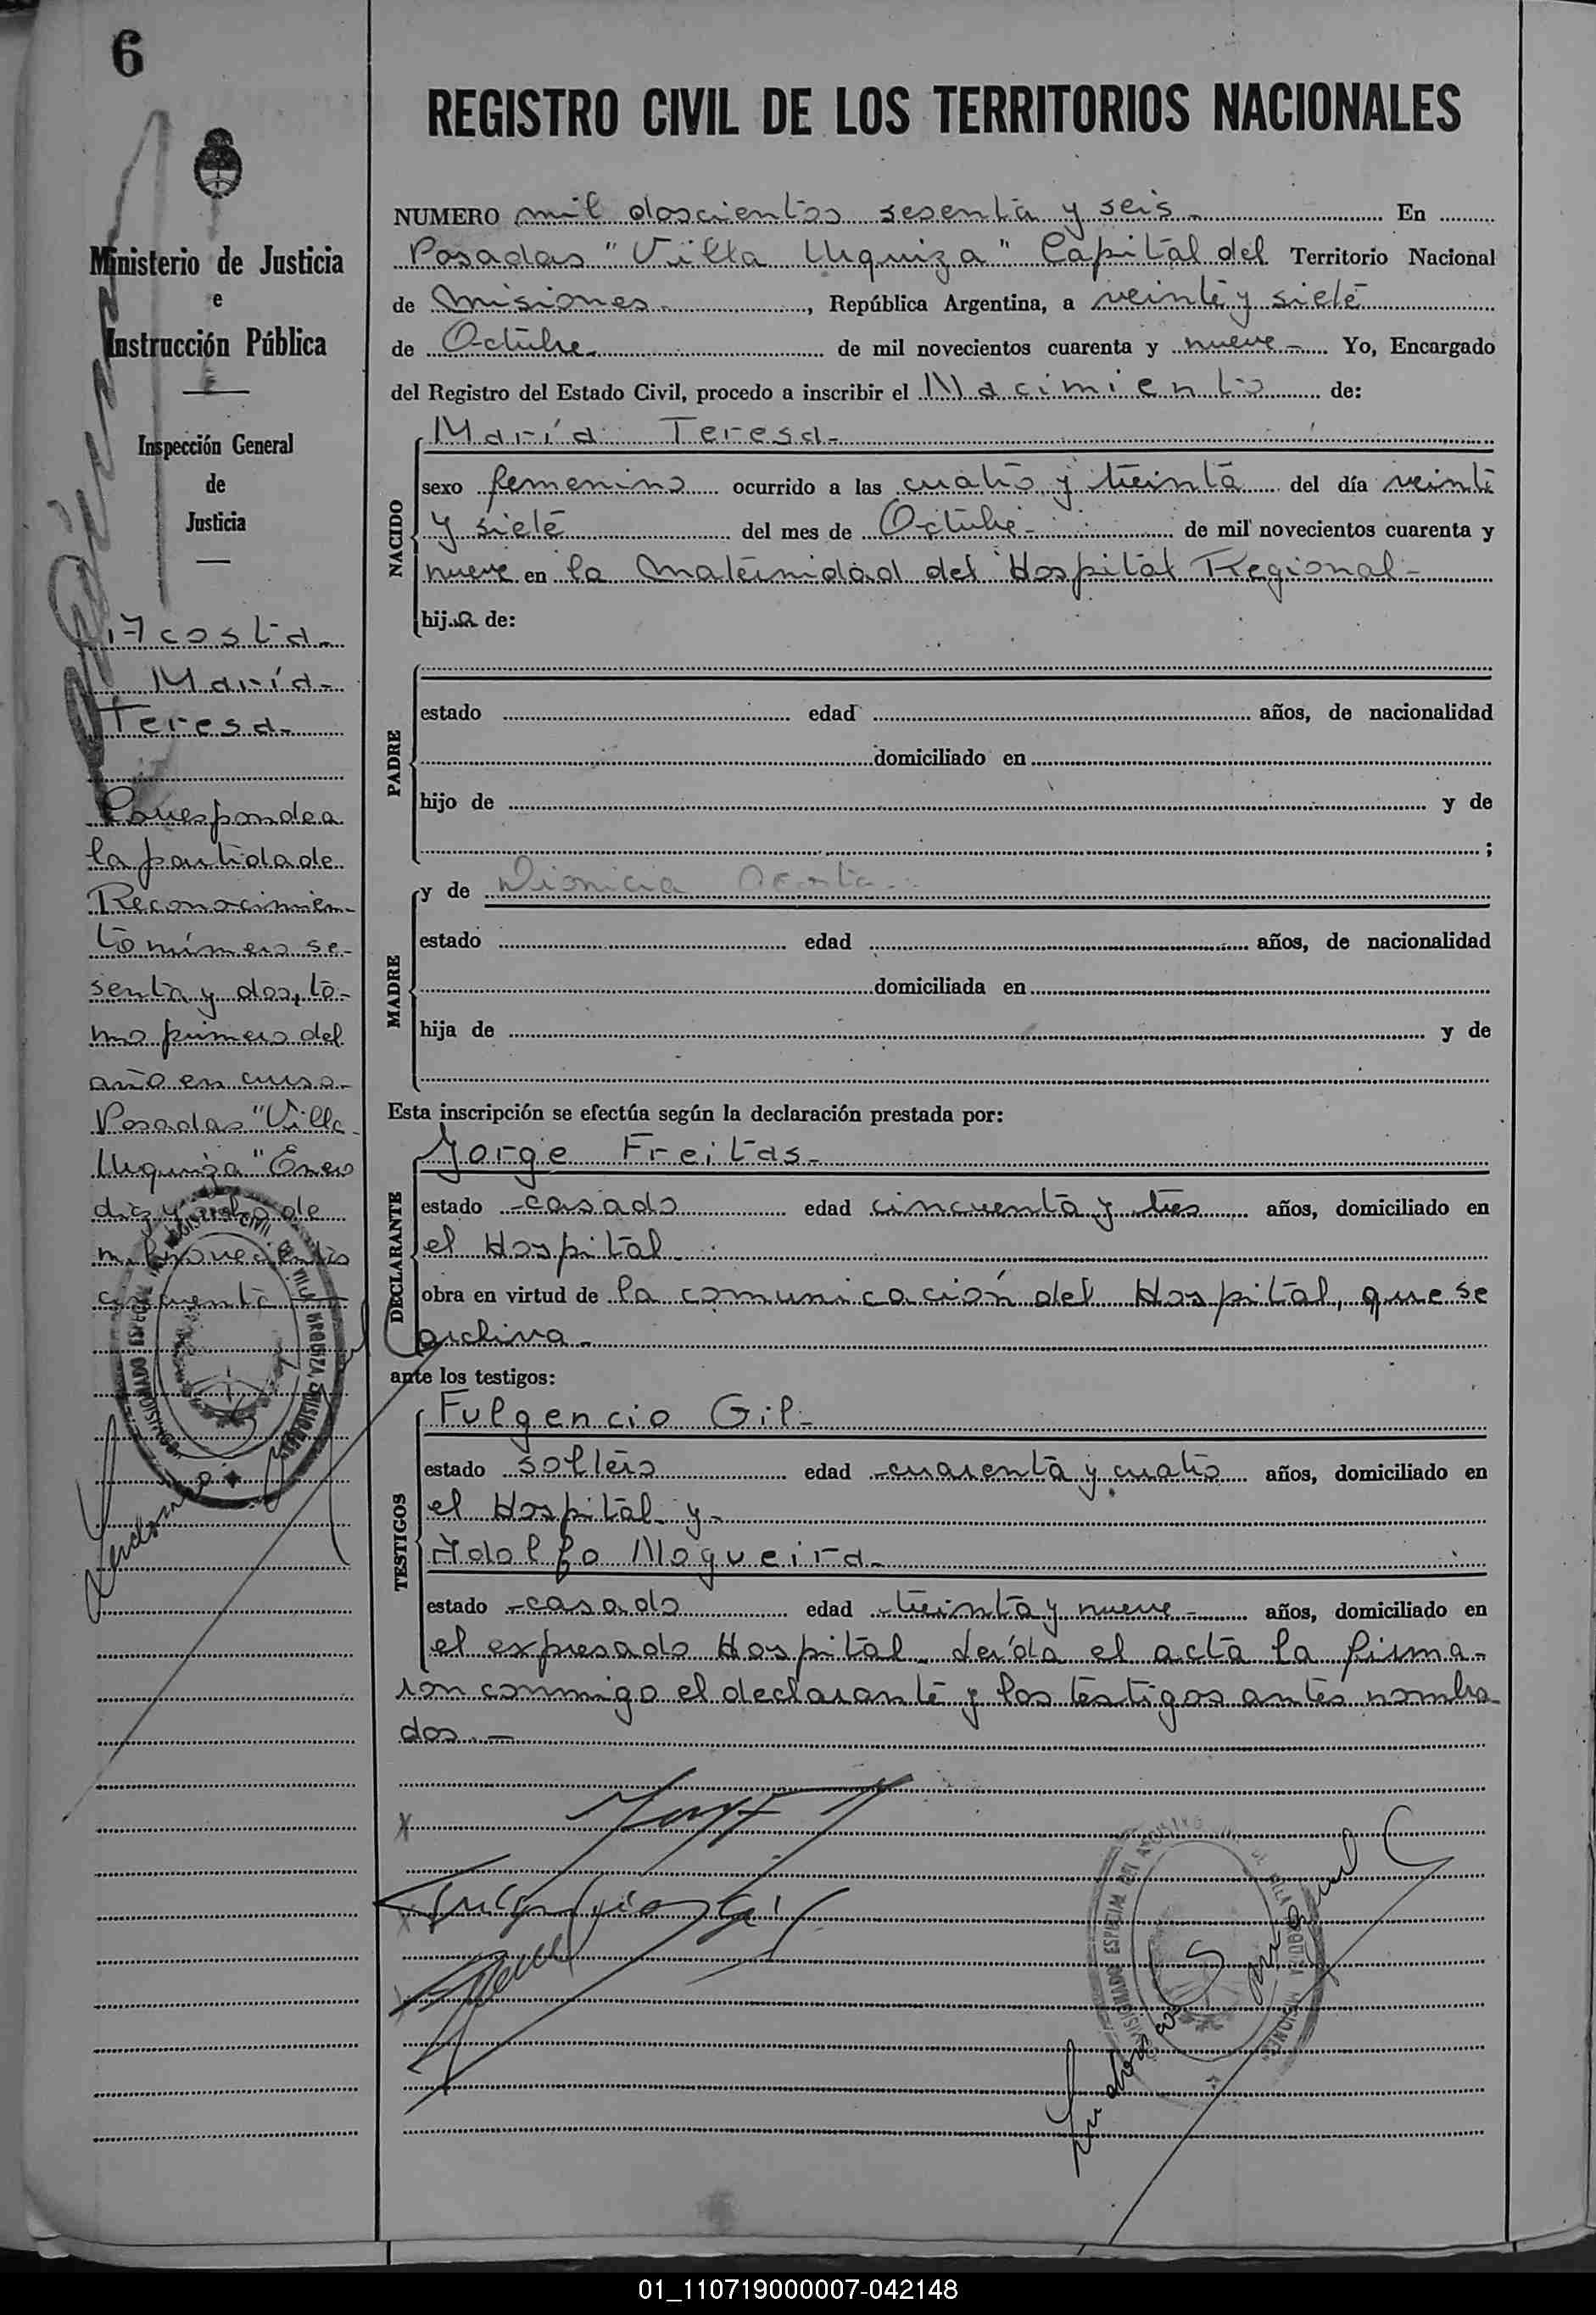 6
REGISTRO CIVIL DE LOS TERRITORIOS NACIONALES
Ministerio de Justicia
e
Instrucción Pública
Inspección General
de
Justicia
Acosta-
María-
Teresa-
Corresponde a
la partida de
Reconocimien-
to número se-
senta y dos, to-
mo primero del
año en curso-
Posadas "Villa
Urquiza" Enero
diez y ocho de
mil novecientos
cincuenta
NUMERO mil doscientos sesenta y seis- En
Posadas "Villa Urquiza" Capital del Territorio Nacional
de Misiones-, República Argentina, a veinte y siete
de Octubre- de mil novecientos cuarenta y nueve- Yo, Encargado
del Registro del Estado Civil, procedo a inscribir el Nacimiento de:
NACIDO
María Teresa-
sexo femenino ocurrido a las cuatro y treinta del día veinte
y siete del mes de Octubre- de mil novecientos cuarenta y
nueve en la Maternidad del Hospital Regional-
hija de:
PADRE
estado edad años, de nacionalidad
domiciliado en
hijo de y de
;
MADRE
y de Dionicia Acosta-
estado edad años, de nacionalidad
domiciliada en
hija de y de
Esta inscripción se efectúa según la declaración prestada por:
DECLARANTE
Jorge Freitas-
estado -casado edad cincuenta y tres años, domiciliado en
el Hospital-
obra en virtud de la comunicación del Hospital, que se
archiva-
ante los testigos:
TESTIGOS
Fulgencio Gil-
estado soltero edad -cuarenta y cuatro años, domiciliado en
el Hospital y-
Adolfo Nogueira-
estado -casado edad -treinta y nueve- años, domiciliado en
el expresado Hospital- Leída el acta la firma-
ron conmigo el declarante y los testigos antes nombra-
dos.-
01_110719000007-042148